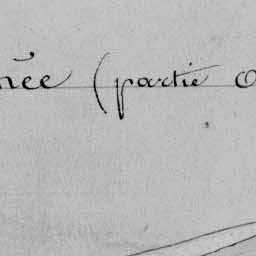 née (partie O